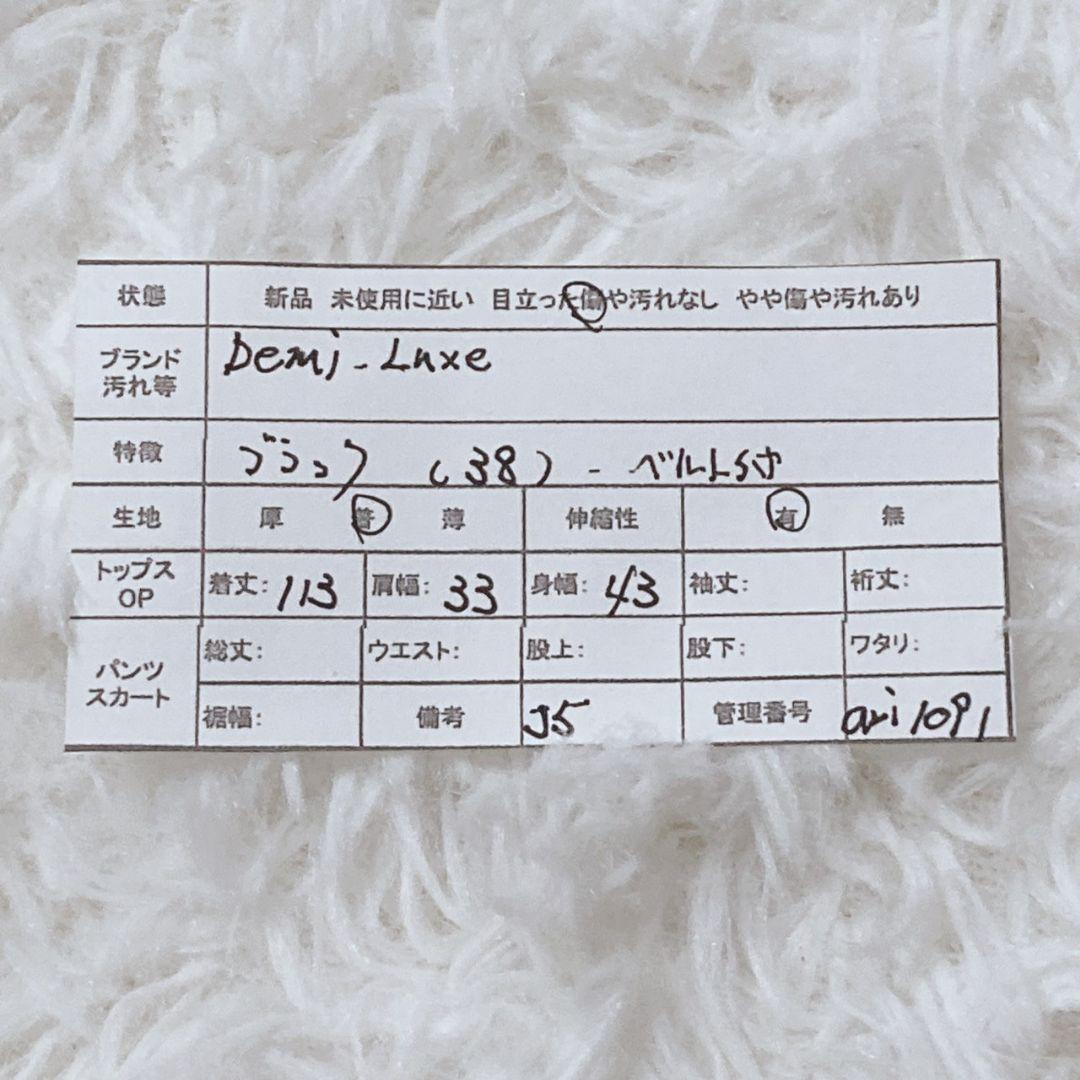 状態 新品 未使用に近い 目立った傷や汚れなし やや傷や汚れあり
ブランド Demi-Luxe
汚れ等
特徴 ブラック (38) - ベルト付
生地 厚 普 薄 伸縮性 有 無
トップス
OP 着丈: 113 肩幅: 33 身幅: 43 袖丈: 裄丈:
パンツ
スカート 総丈: ウエスト: 股上: 股下: ワタリ:
裾幅: 備考 J5 管理番号 ari1091